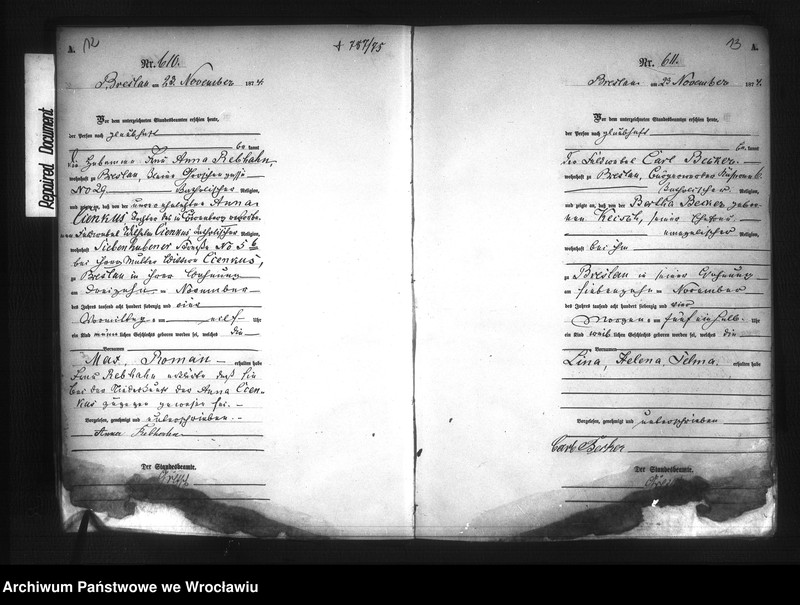 A. 12
† 787/75
Nr. 610.
Breslau am 23. November 1874.
Vor dem unterzeichneten Standesbeamten erschien heute,
der Person nach glaubhaft
be kannt
die Hebamme Frau Anna Rebhahn,
wohnhaft zu Breslau, Kleine Groschengasse
No 29 katholischer Religion,
und zeigte an, daß von der unverehelichten Anna
Cienkus, Tochter des in verstorbe-
nen Feldwebel Wilhelm Cienkus, katholischer Religion,
wohnhaft Siebenhubener Straße No 5
bei ihrer Mutter Wittwe Cienkus,
zu Breslau in ihrer Wohnung
am dreizehn ten November
des Jahres tausend acht hundert siebenzig und vier
Vormittags um elf Uhr
ein Kind männ lichen Geschlechts geboren worden sei, welches die
Vornamen
Max, Roman erhalten habe
Frau Rebhahn erklärte daß sie
bei der Niederkunft der Anna Cien-
kus zugegen gewesen sei.
Vorgelesen, genehmigt und unterschrieben.
Anna Rebhahn
Der Standesbeamte.
Repaired Document
13 A.
Nr. 611.
Breslau am 23 November 1874.
Vor dem unterzeichneten Standesbeamten erschien heute,
der Person nach glaubhaft
be kannt
der Feldwebel Carl Becker
wohnhaft zu Breslau, Bürgerwerder
katholischer Religion,
und zeigte an, daß von der Bertha Becker gebor-
nen seiner Ehefrau
evangelischer Religion,
wohnhaft bei ihm
zu Breslau in seiner Wohnung
am siebenzehn ten November
des Jahres tausend acht hundert siebenzig und vier
Morgens um fünf einhalb Uhr
ein Kind weib lichen Geschlechts geboren worden sei, welches die
Vornamen
Lina, Helena, Selma erhalten habe
Vorgelesen, genehmigt und unterschrieben
Carl Becker
Der Standesbeamte.
Archiwum Państwowe we Wrocławiu